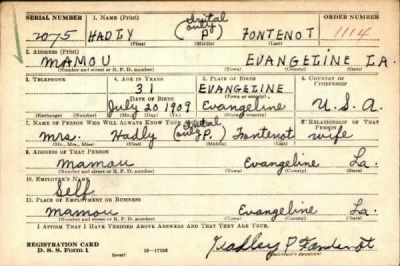 SERIAL NUMBER 1. NAME (Print) ORDER NUMBER
2075 HADLY (initial only) P FONTENOT 1114
(First) (Middle) (Last)
2. ADDRESS (Print)
MAMOU EVANGELINE LA.
(Number and street or R. F. D. number) (Town) (County) (State)
3. TELEPHONE 4. AGE IN YEARS 5. PLACE OF BIRTH 6. COUNTRY OF CITIZENSHIP
31 EVANGELINE
DATE OF BIRTH (Town or county)
July 20 1909 Evangeline U.S.A.
(Exchange) (Number) (Mo.) (Day) (Yr.) (State or country)
7. NAME OF PERSON WHO WILL ALWAYS KNOW YOUR ADDRESS 8. RELATIONSHIP OF THAT PERSON
Mrs. Hadly (initial only) P. Fontenot wife
(Mr., Mrs., Miss) (First) (Middle) (Last)
9. ADDRESS OF THAT PERSON
Mamou Evangeline La.
(Number and street or R. F. D. number) (Town) (County) (State)
10. EMPLOYER'S NAME
Self
11. PLACE OF EMPLOYMENT OR BUSINESS
Mamou Evangeline La.
(Number and street or R. F. D. number) (Town) (County) (State)
I AFFIRM THAT I HAVE VERIFIED ABOVE ANSWERS AND THAT THEY ARE TRUE.
REGISTRATION CARD
D. S. S. Form 1 (over) Hadley P Fontenot
(Registrant's signature)